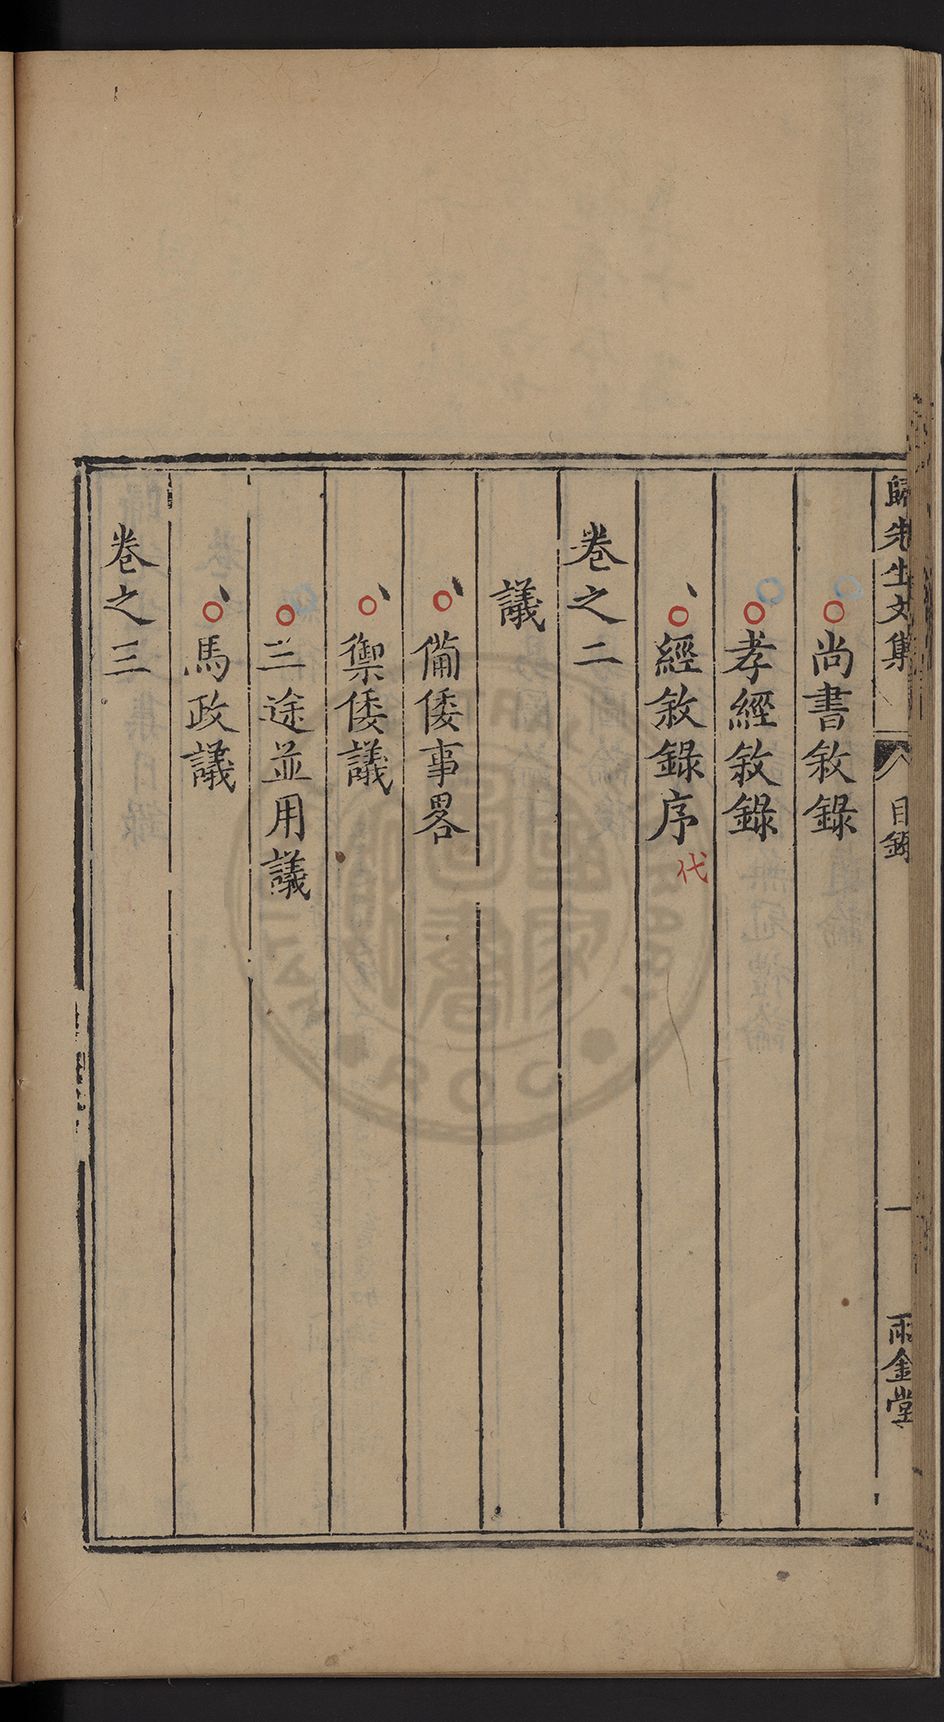 歸先生文集 目錄 一 雨金堂
尚書敘錄
孝經敘錄
經敘錄序代
卷之二
議
備倭事畧
禦倭議
三途並用議
馬政議
卷之三